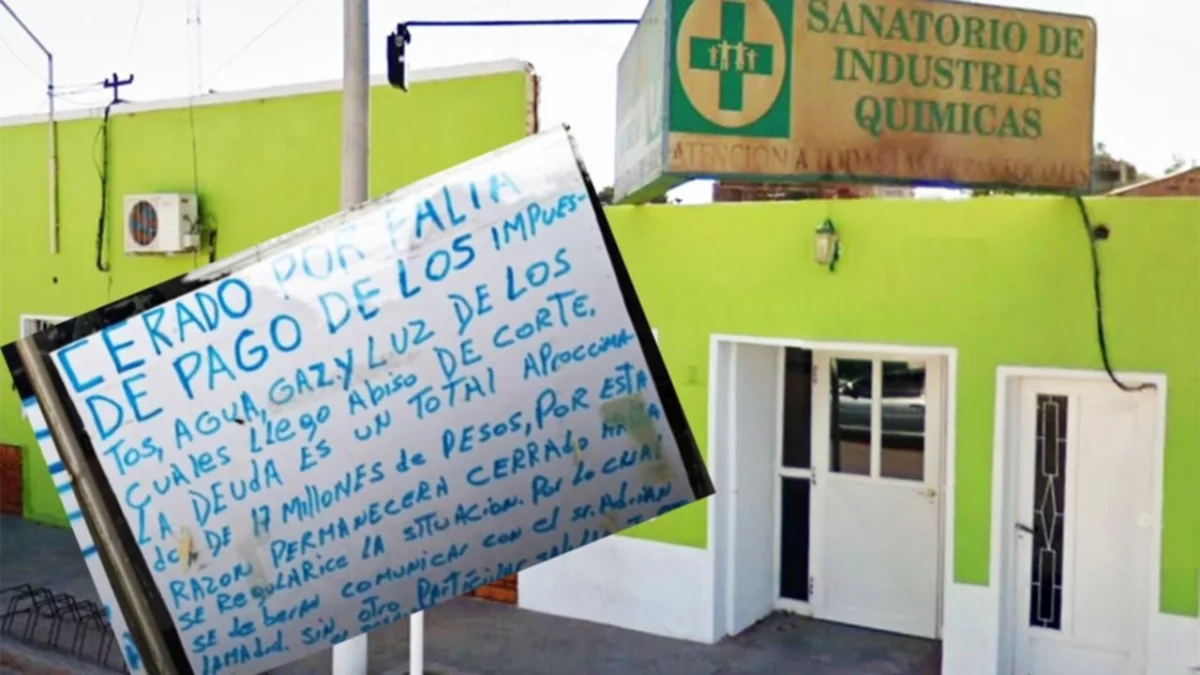 SANATORIO DE
INDUSTRIAS
QUIMICAS
ATENCION A TODAS LAS OBRAS SOCIALES
CERADO POR FALTA
DE PAGO DE LOS IMPUES-
TOS, AGUA, GAZ Y LUZ DE LOS
CUALES LLEGO ABISO DE CORTE.
LA DEUDA ES UN TOTAL APROCCIMA-
do DE 17 MILLONES de PESOS, POR ESTA
RAZON PERMANECERA CERRADO HASTA
SE REGULARICE LA SITUACION. POR LO CUAL
SE deberan COMUNICAR CON el SR. Adrian
SIN OTRO PARTICULAR